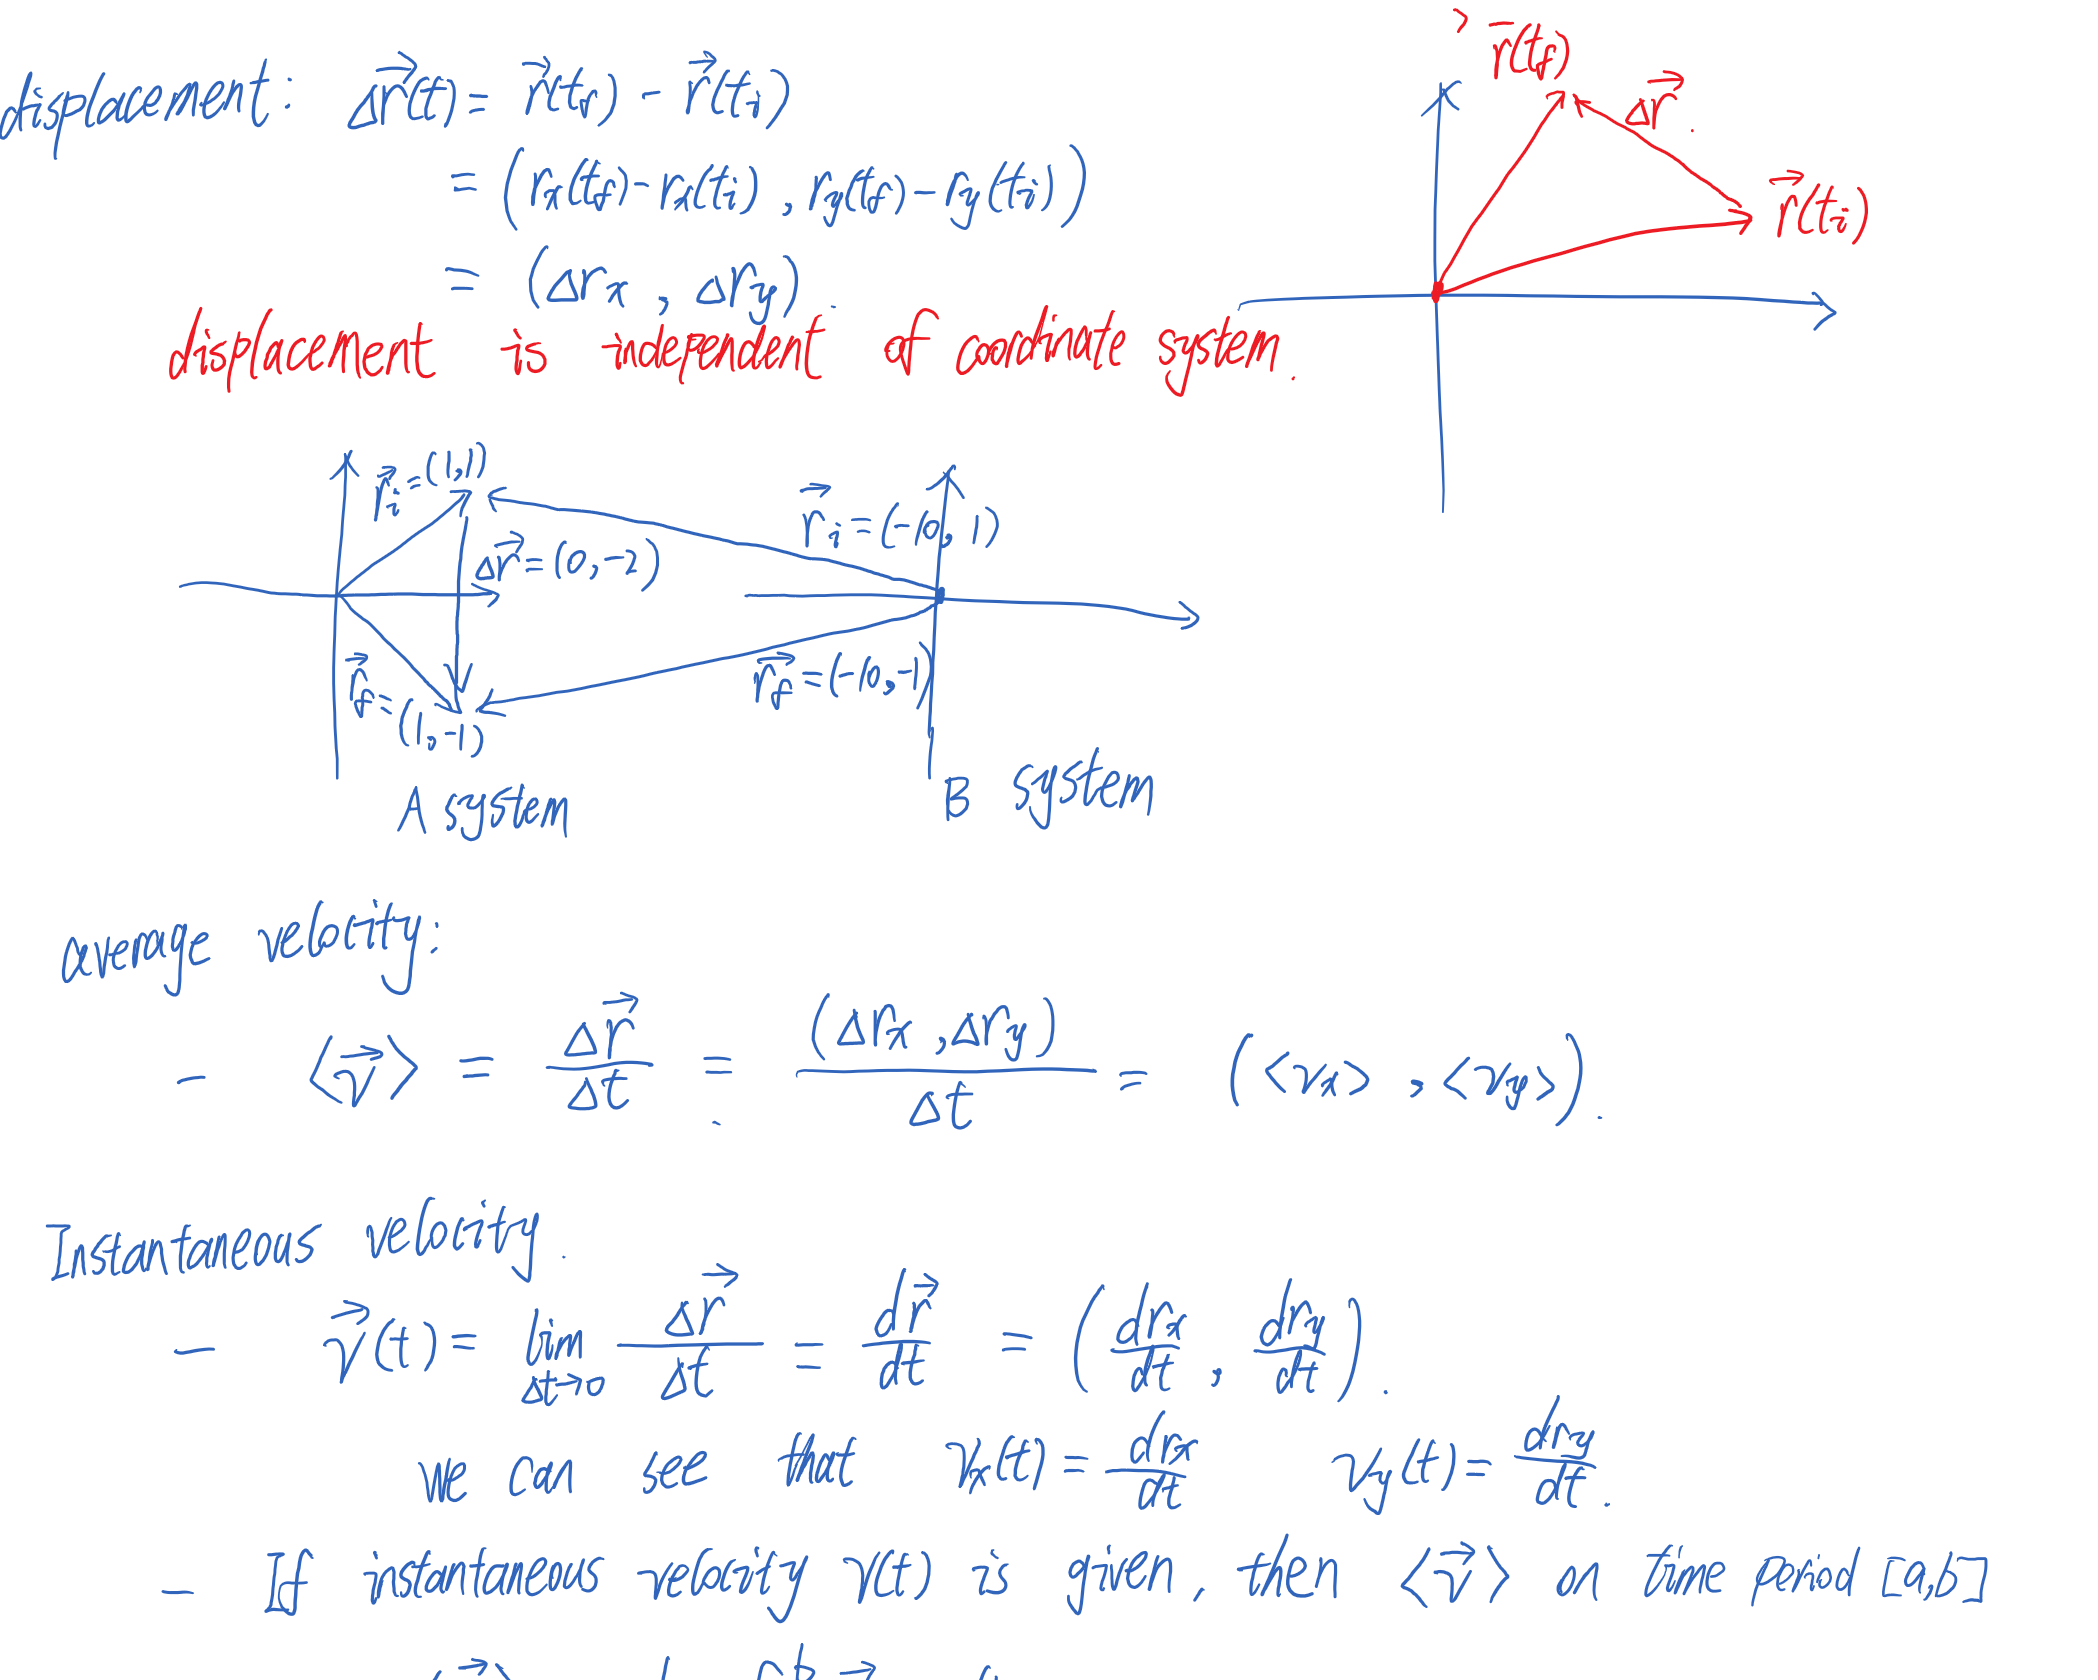 displacement: Δr⃗(t) = r⃗(tf) - r⃗(ti)
= (rx(tf) - rx(ti), ry(tf) - ry(ti))
= (Δrx, Δry).
displacement is independent of coordinate system.
r⃗(tf)
Δr⃗.
r⃗(ti)
r⃗i = (1,1)
Δr⃗ = (0,-2)
r⃗f = (1,-1)
A system
r⃗i = (-10,1)
r⃗f = (-10,-1)
B system
average velocity:
- <v⃗> = Δr⃗/Δt = (Δrx, Δry)/Δt = (<vx>, <vy>).
Instantaneous velocity.
- v⃗(t) = lim Δt→0 Δr⃗/Δt = dr⃗/dt = (drx/dt, dry/dt).
we can see that vx(t) = drx/dt vy(t) = dry/dt.
- If instantaneous velocity v(t) is given, then <v⃗> on time period [a,b]